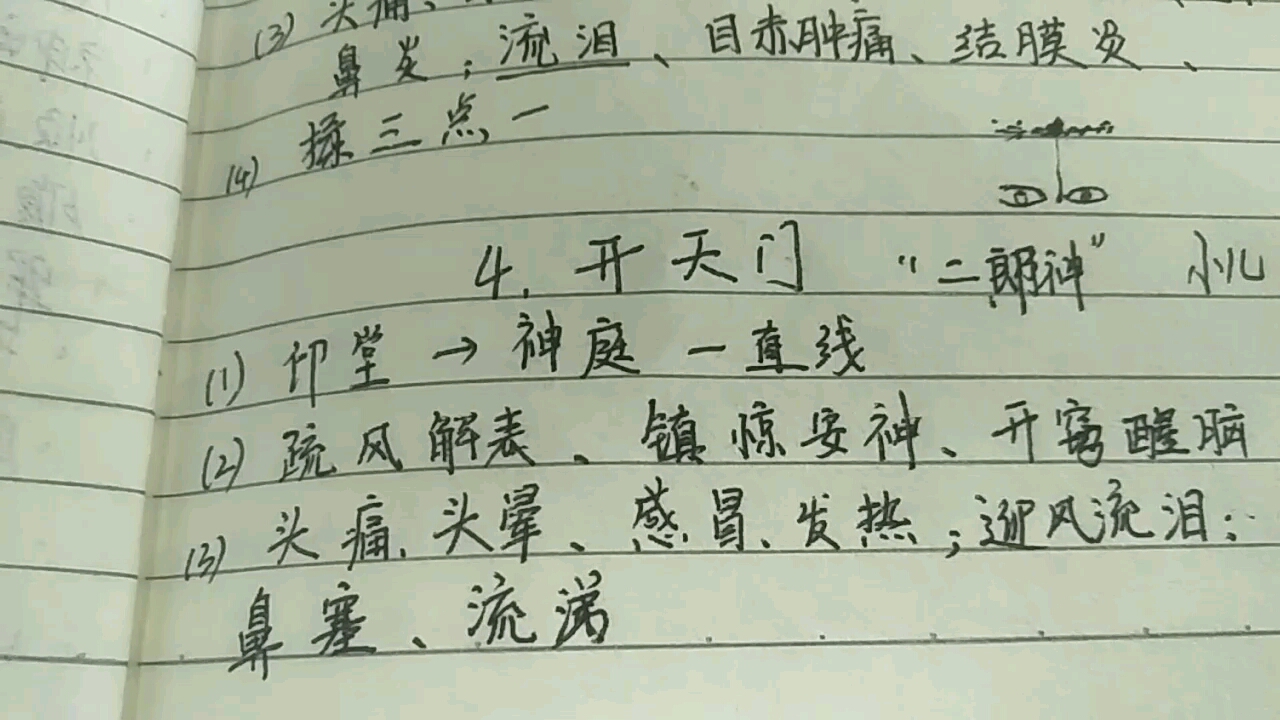 (3) 头痛、
鼻炎；流泪、目赤肿痛、结膜炎、
(4) 揉三点一
4. 开天门 “二郎神” 小儿
(1) 印堂 → 神庭 一直线
(2) 疏风解表、镇惊安神、开窍醒脑
(3) 头痛、头晕、感冒、发热；迎风流泪；
鼻塞、流涕